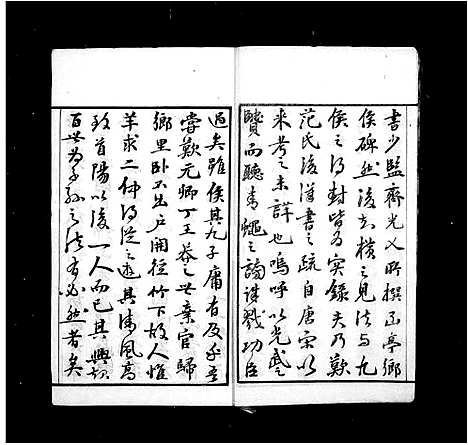 書少監齊光乂所撰函亭鄉
侯碑然後知橫之見法与九
侯之得封皆為實錄夫乃歎
范氏後漢書之疏自唐宋以
來考之未詳也嗚呼以光武
賢而聽青蠅之譖誅戮功臣
過矣雖侯其九子庸有及乎吾
嘗歎元卿丁王莽之世棄官歸
鄉里臥不出戶開徑竹下故人惟
羊求二仲得從之遊其清風高
致首陽以後一人而已其興起
百世為子孫之法有必然者矣